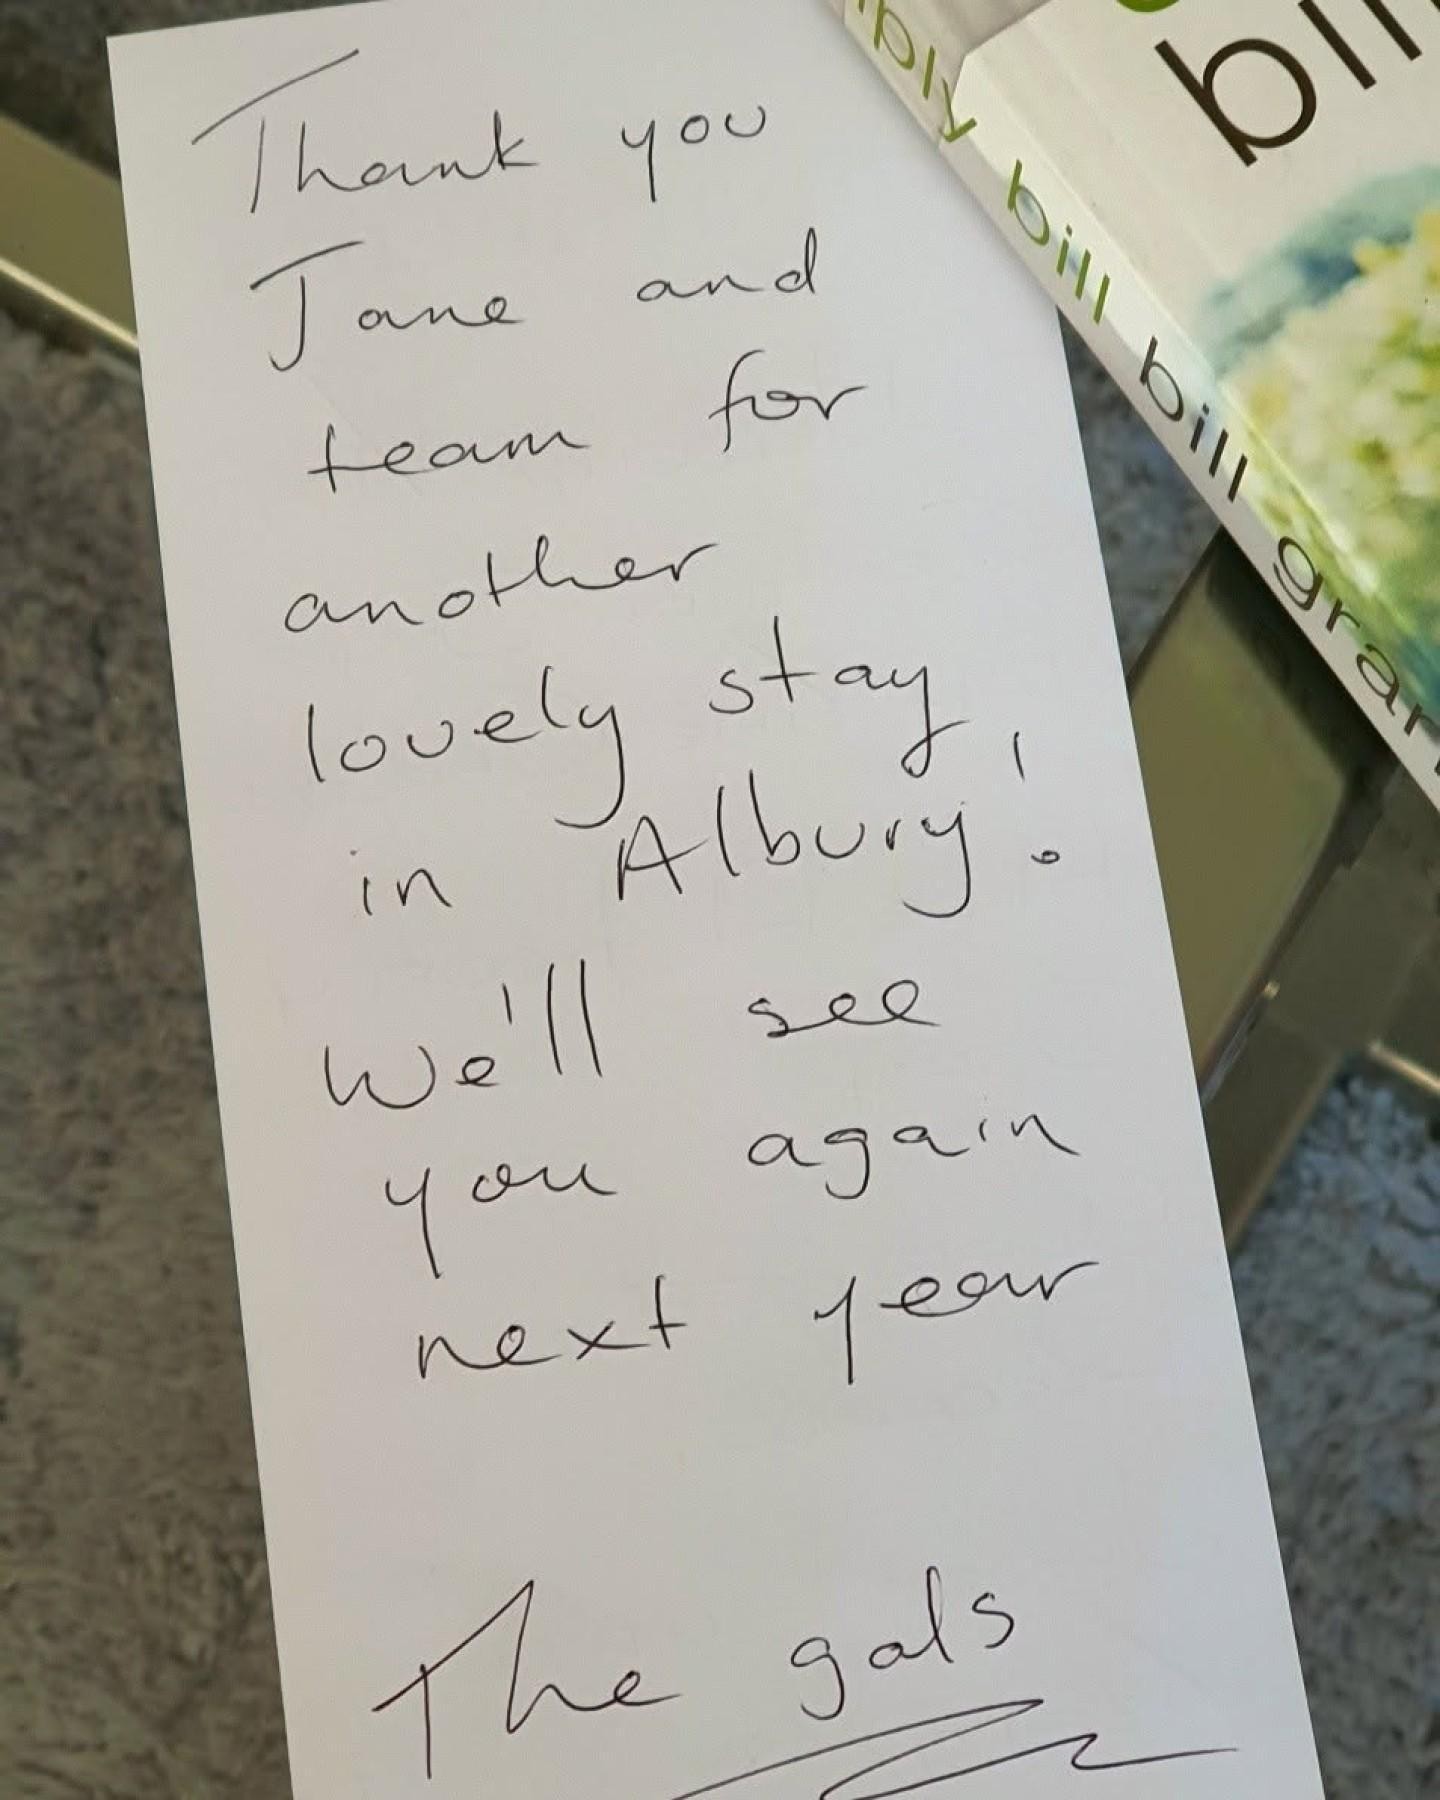 Thank you
Jane and
team for
another
lovely stay
in Albury!
We'll see
you again
next year
The gals
bill bill gran